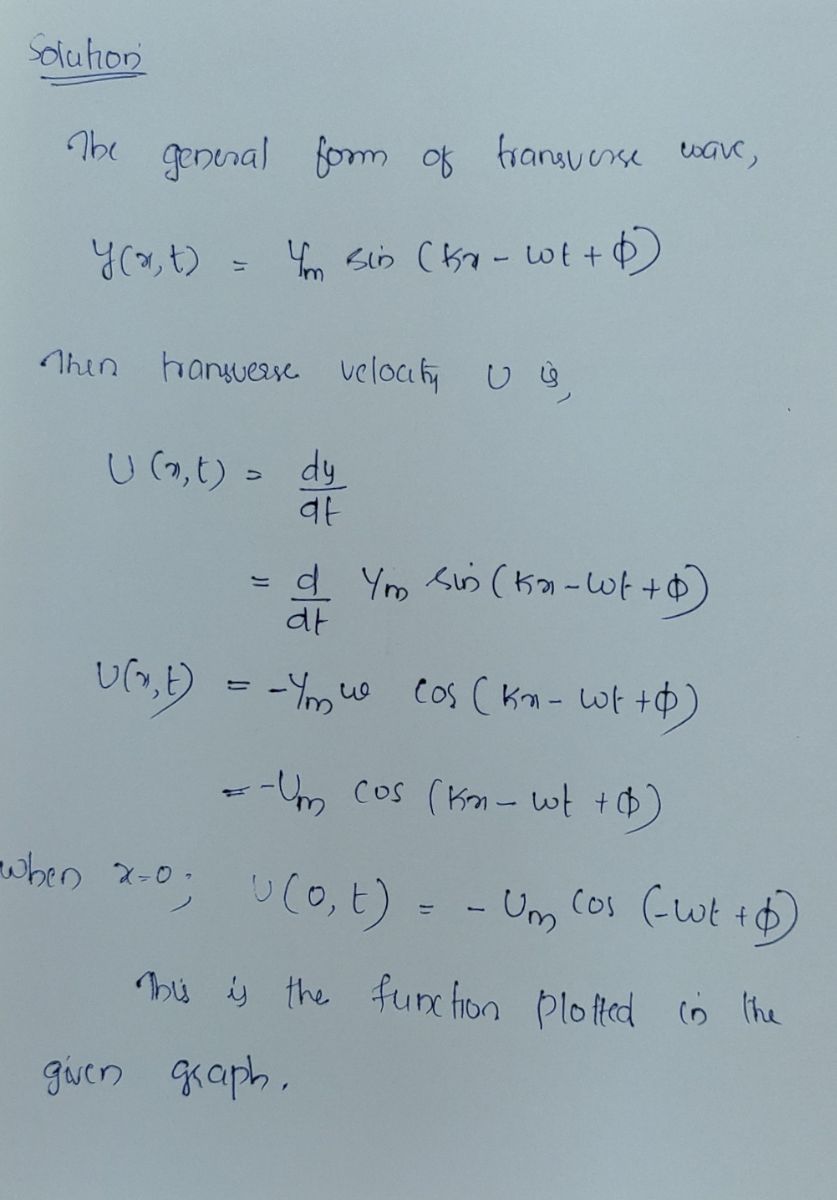 Solution
The general form of transverse wave,
y(x,t) = Ym sin (Kx - ωt + Φ)
Then transverse velocity U is,
U (x,t) = dy/dt
= d/dt Ym sin (Kx - ωt + Φ)
U(x,t) = -Ym ω cos (Kx - ωt + Φ)
= -Um cos (Kx - ωt + Φ)
when x=0; U(0,t) = - Um cos (-ωt + Φ)
This is the function plotted in the
given graph.